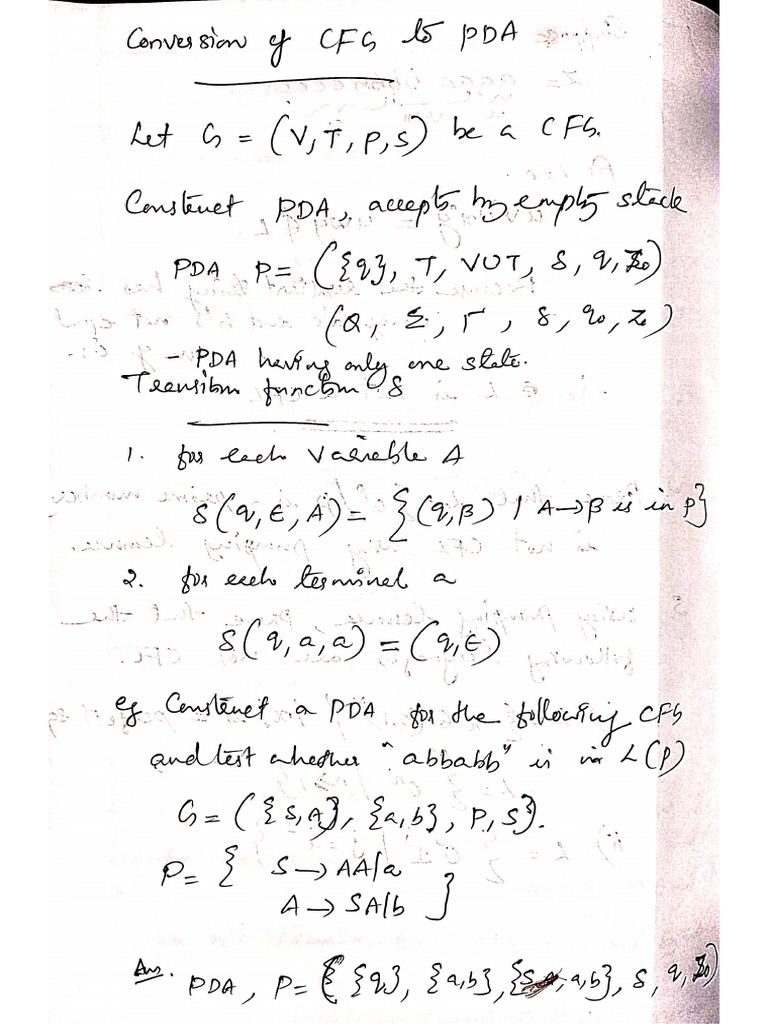 Conversion of CFG to PDA
Let G = (V, T, P, S) be a CFG.
Construct PDA, accepts by empty stack
PDA P = ({q}, T, VUT, δ, q, Z₀)
(Q, Σ, Γ, δ, q₀, z₀)
- PDA having only one state.
Transition function δ
1. for each variable A
δ(q, ε, A) = {(q, β) / A → β is in P}
2. for each terminal a
δ(q, a, a) = (q, ε)
eg Construct a PDA for the following CFG
and test whether "abbabb" is in L(P)
G = ({S, A}, {a, b}, P, S).
P = { S → AA/a
A → SA/b }
Ans. PDA, P = ( {q}, {a, b}, {S, a, b}, δ, q, Z₀)